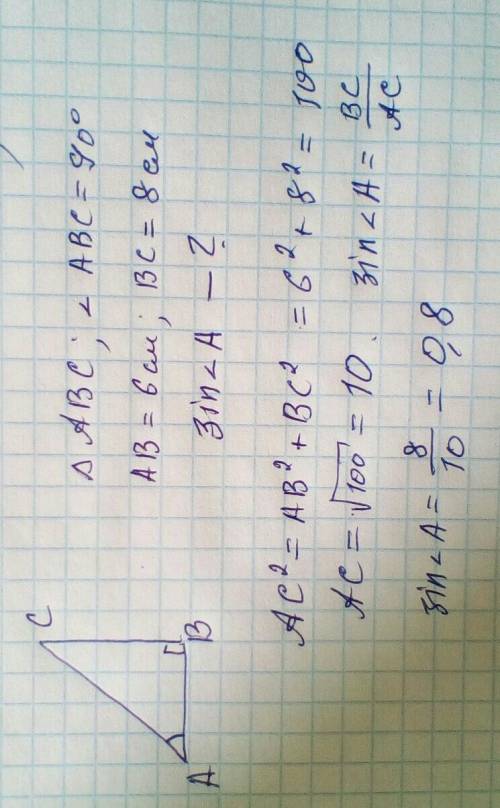 △ ABC; < ABC = 90°
AB = 6 см; BC = 8 см
sin < A — ?
C
A
B
AC² = AB² + BC² = 6² + 8² = 100
AC = √100 = 10. sin < A = BC/AC
sin < A = 8/10 = 0,8